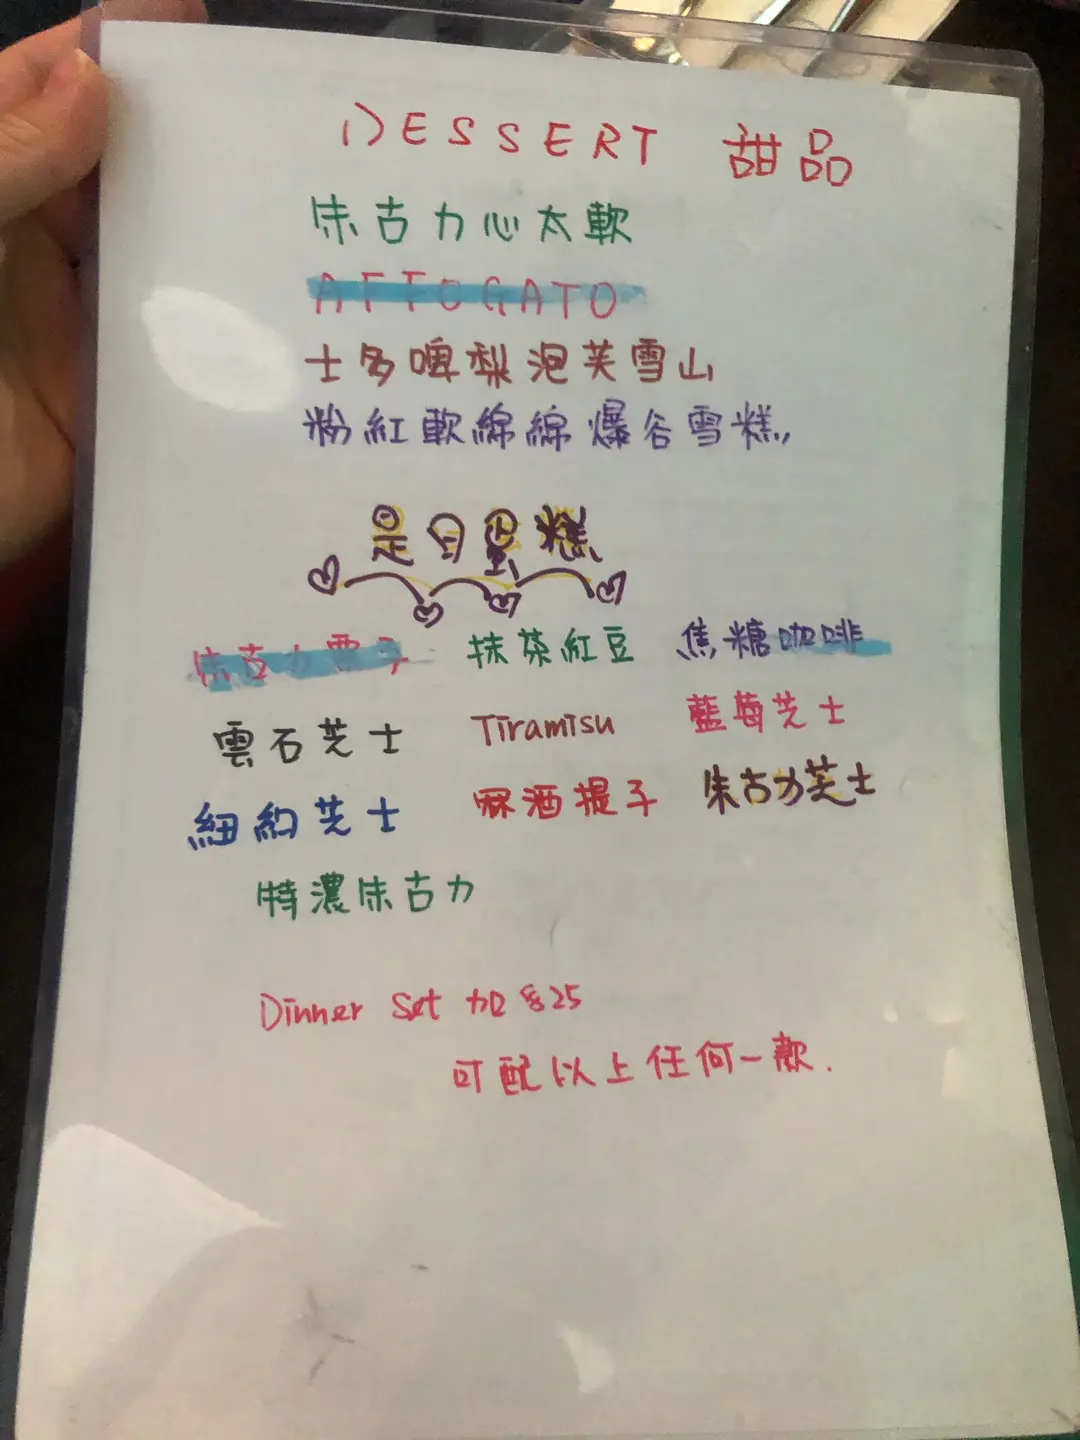 DESSERT 甜品
朱古力心太軟
AFFOGATO
士多啤梨泡芙雪山
粉紅軟綿綿爆谷雪糕
是日蛋糕
朱古力栗子 抹茶紅豆 焦糖咖啡
雲石芝士 Tiramisu 藍莓芝士
紐約芝士 冧酒提子 朱古力芝士
特濃朱古力
Dinner Set 加 $25
可配以上任何一款.